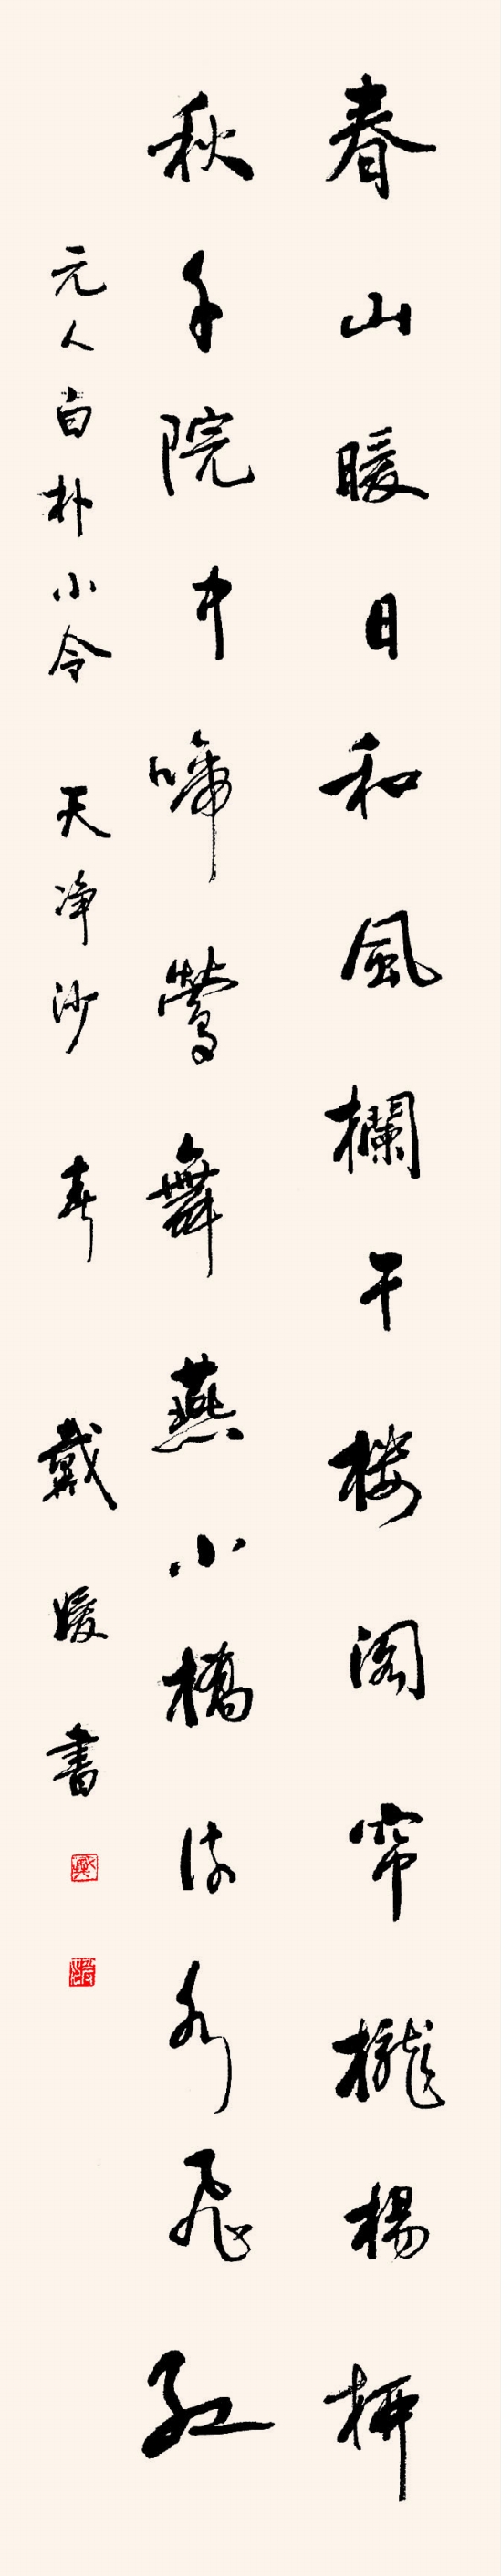 春山暖日和風欄干楼阁帘櫳楊柳
秋千院中啼鶯舞燕小橋流水飛红
元人白朴小令 天净沙 春 戴媛書